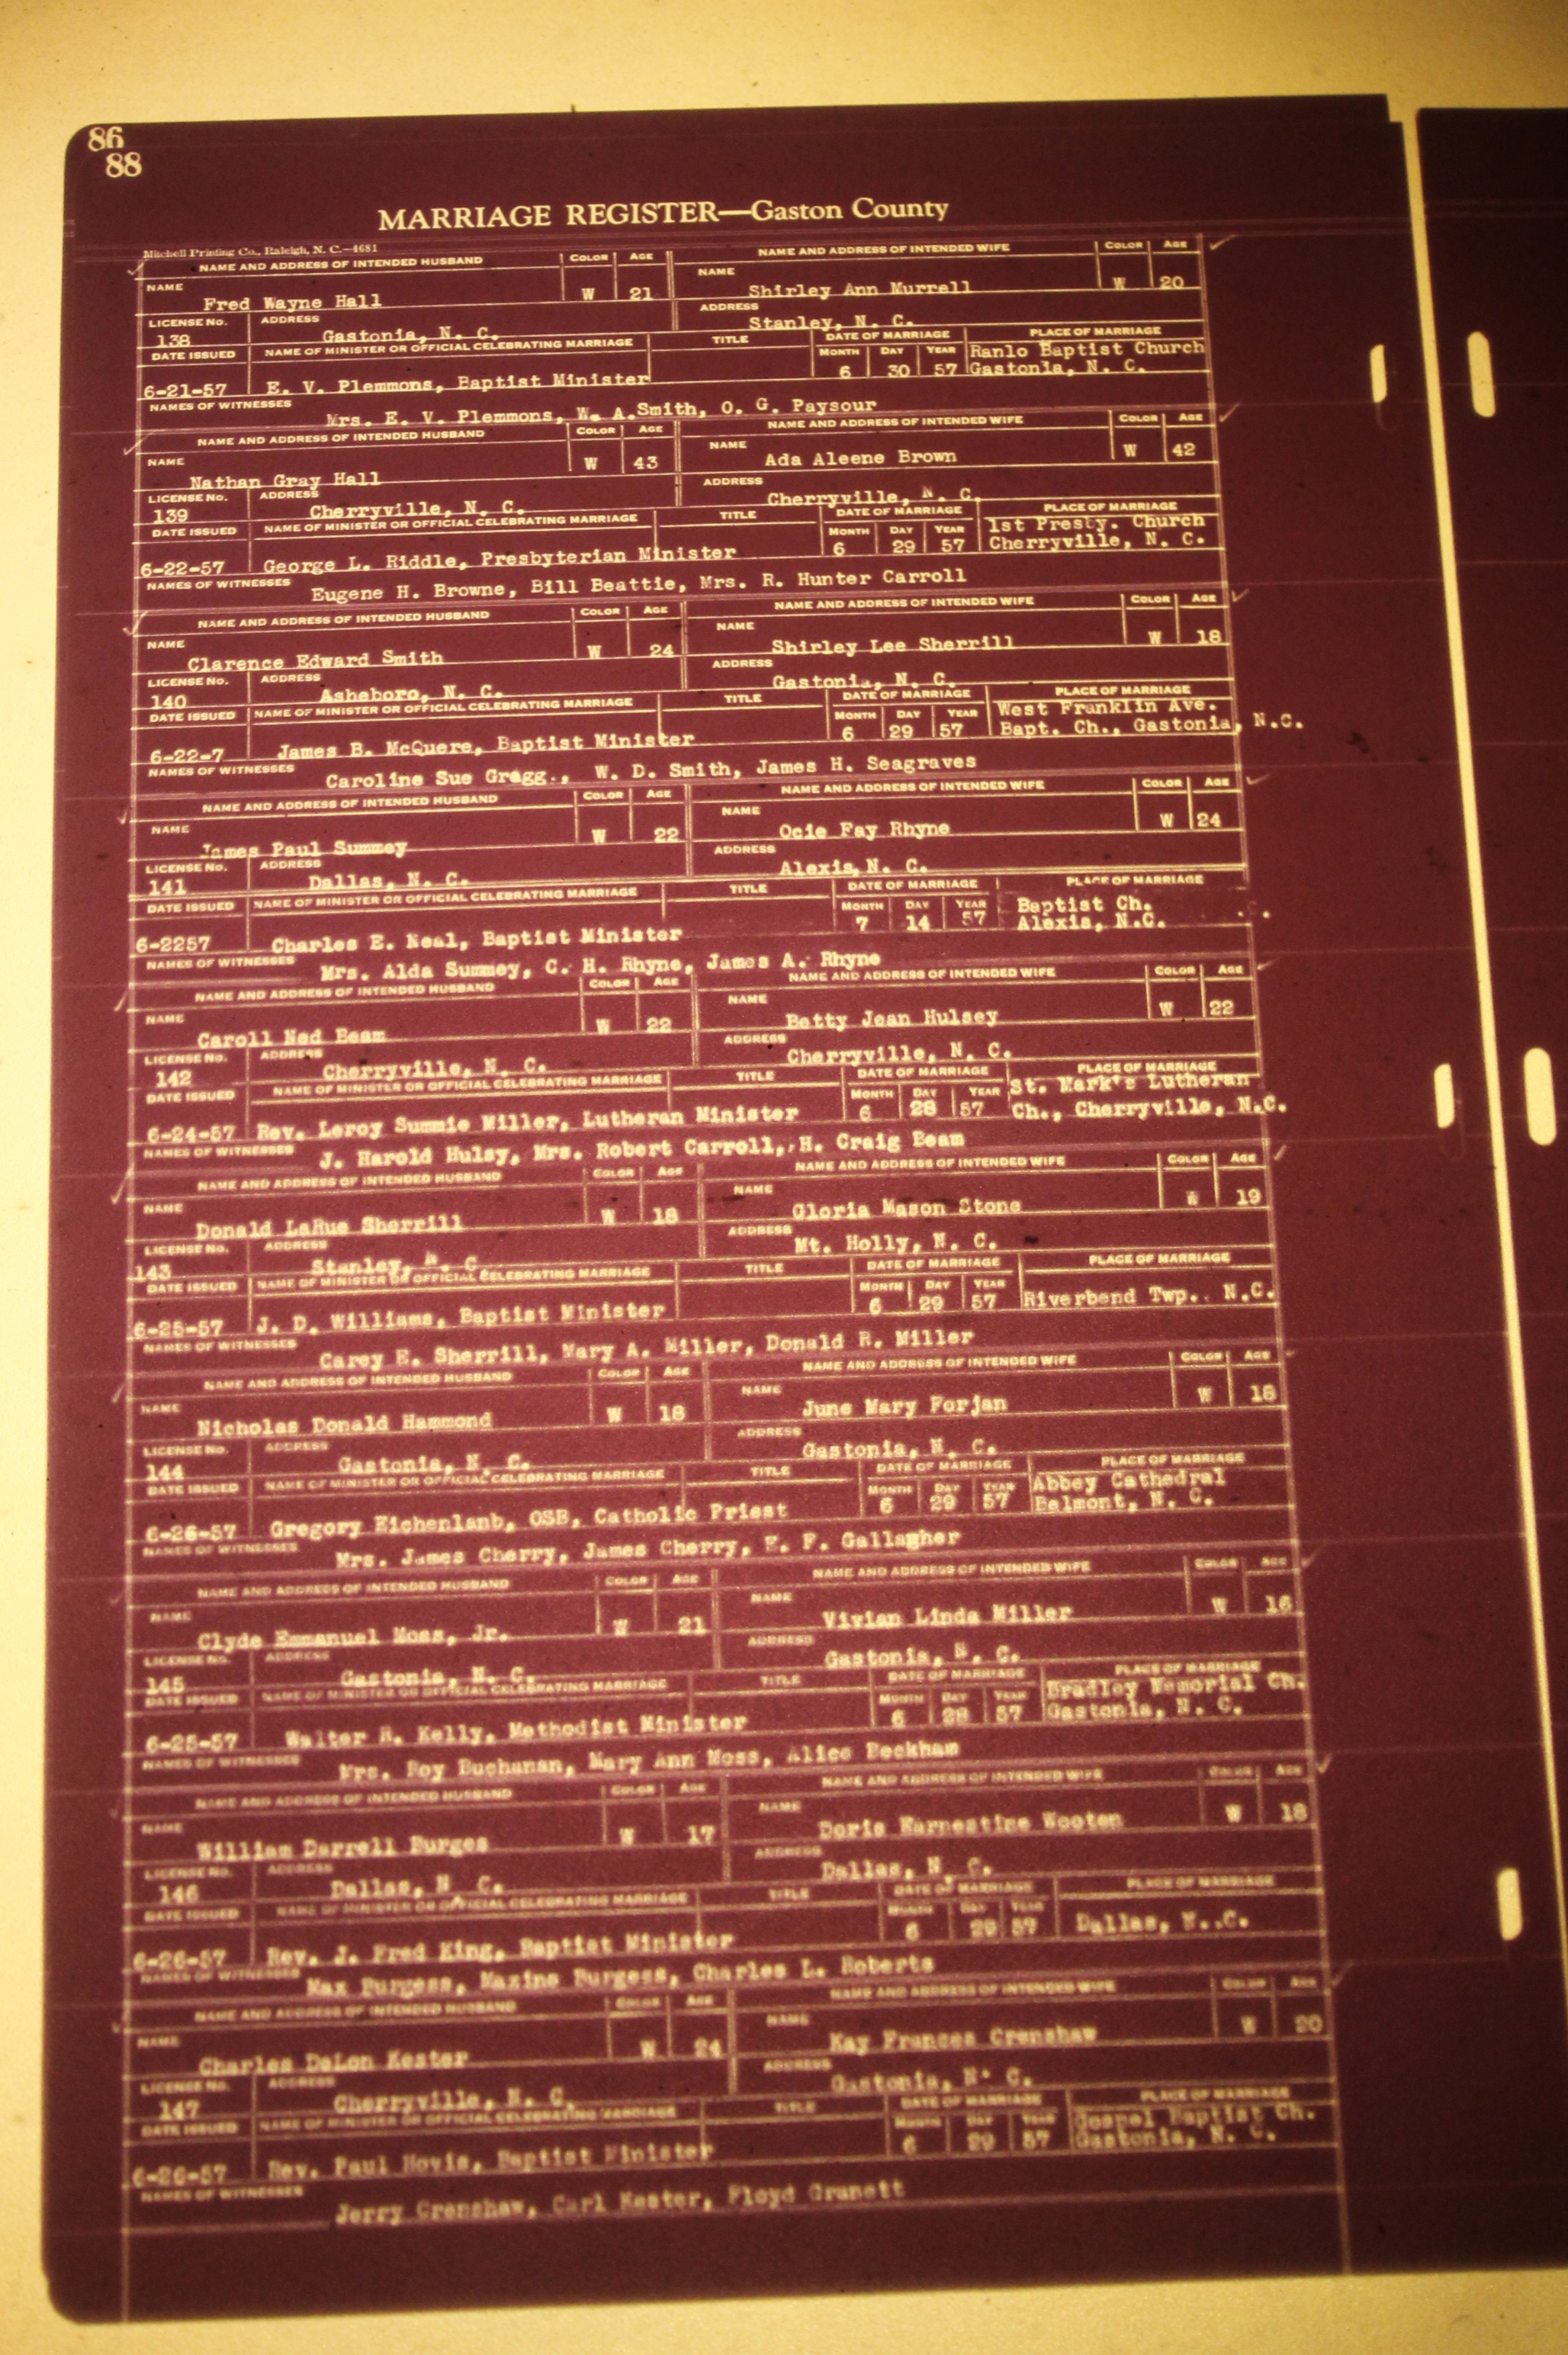 86
88
MARRIAGE REGISTER—Gaston County
Mitchell Printing Co., Raleigh, N. C.—4681
NAME AND ADDRESS OF INTENDED HUSBAND COLOR AGE NAME AND ADDRESS OF INTENDED WIFE COLOR AGE
NAME Fred Wayne Hall W 21 NAME Shirley Ann Murrell W 20
LICENSE No. 138 ADDRESS Gastonia, N. C. ADDRESS Stanley, N. C.
DATE ISSUED NAME OF MINISTER OR OFFICIAL CELEBRATING MARRIAGE TITLE DATE OF MARRIAGE PLACE OF MARRIAGE
MONTH DAY YEAR Ranlo Baptist Church
6-21-57 E. V. Plemmons, Baptist Minister 6 30 57 Gastonia, N. C.
NAMES OF WITNESSES Mrs. E. V. Plemmons, W. A.Smith, O. G. Paysour
NAME AND ADDRESS OF INTENDED HUSBAND COLOR AGE NAME AND ADDRESS OF INTENDED WIFE COLOR AGE
NAME Nathan Gray Hall W 43 NAME Ada Aleene Brown W 42
LICENSE No. 139 ADDRESS Cherryville, N. C. ADDRESS Cherryville, N. C.
DATE ISSUED NAME OF MINISTER OR OFFICIAL CELEBRATING MARRIAGE TITLE DATE OF MARRIAGE PLACE OF MARRIAGE
MONTH DAY YEAR 1st Presty. Church
6-22-57 George L. Riddle, Presbyterian Minister 6 29 57 Cherryville, N. C.
NAMES OF WITNESSES Eugene H. Browne, Bill Beattie, Mrs. R. Hunter Carroll
NAME AND ADDRESS OF INTENDED HUSBAND COLOR AGE NAME AND ADDRESS OF INTENDED WIFE COLOR AGE
NAME Clarence Edward Smith W 24 NAME Shirley Lee Sherrill W 18
LICENSE No. 140 ADDRESS Asheboro, N. C. ADDRESS Gastonia, N. C.
DATE ISSUED NAME OF MINISTER OR OFFICIAL CELEBRATING MARRIAGE TITLE DATE OF MARRIAGE PLACE OF MARRIAGE
MONTH DAY YEAR West Franklin Ave.
6-22-7 James B. McQuere, Baptist Minister 6 29 57 Bapt. Ch., Gastonia, N.C.
NAMES OF WITNESSES Caroline Sue Gragg., W. D. Smith, James H. Seagraves
NAME AND ADDRESS OF INTENDED HUSBAND COLOR AGE NAME AND ADDRESS OF INTENDED WIFE COLOR AGE
NAME James Paul Summey W 22 NAME Ocie Fay Rhyne W 24
LICENSE No. 141 ADDRESS Dallas, N. C. ADDRESS Alexis, N. C.
DATE ISSUED NAME OF MINISTER OR OFFICIAL CELEBRATING MARRIAGE TITLE DATE OF MARRIAGE PLACE OF MARRIAGE
MONTH DAY YEAR Baptist Ch.
6-2257 Charles E. Neal, Baptist Minister 7 14 57 Alexis, N.C.
NAMES OF WITNESSES Mrs. Alda Summey, C. H. Rhyne, James A. Rhyne
NAME AND ADDRESS OF INTENDED HUSBAND COLOR AGE NAME AND ADDRESS OF INTENDED WIFE COLOR AGE
NAME Caroll Ned Beam W 22 NAME Betty Jean Hulsey W 22
LICENSE No. 142 ADDRESS Cherryville, N. C. ADDRESS Cherryville, N. C.
DATE ISSUED NAME OF MINISTER OR OFFICIAL CELEBRATING MARRIAGE TITLE DATE OF MARRIAGE PLACE OF MARRIAGE
MONTH DAY YEAR St. Mark's Lutheran
6-24-57 Rev. Leroy Summie Miller, Lutheran Minister 6 28 57 Ch., Cherryville, N.C.
NAMES OF WITNESSES J. Harold Hulsy, Mrs. Robert Carroll, H. Craig Beam
NAME AND ADDRESS OF INTENDED HUSBAND COLOR AGE NAME AND ADDRESS OF INTENDED WIFE COLOR AGE
NAME Donald LaRue Sherrill W 18 NAME Gloria Mason Stone W 19
LICENSE No. 143 ADDRESS Stanley, N. C. ADDRESS Mt. Holly, N. C.
DATE ISSUED NAME OF MINISTER OR OFFICIAL CELEBRATING MARRIAGE TITLE DATE OF MARRIAGE PLACE OF MARRIAGE
MONTH DAY YEAR
6-25-57 J. D. Williams, Baptist Minister 6 29 57 Riverbend Twp., N.C.
NAMES OF WITNESSES Carey E. Sherrill, Mary A. Miller, Donald R. Miller
NAME AND ADDRESS OF INTENDED HUSBAND COLOR AGE NAME AND ADDRESS OF INTENDED WIFE COLOR AGE
NAME Nicholas Donald Hammond W 18 NAME June Mary Forjan W 18
LICENSE No. 144 ADDRESS Gastonia, N. C. ADDRESS Gastonia, N. C.
DATE ISSUED NAME OF MINISTER OR OFFICIAL CELEBRATING MARRIAGE TITLE DATE OF MARRIAGE PLACE OF MARRIAGE
MONTH DAY YEAR Abbey Cathedral
6-26-57 Gregory Eichenlanb, OSB, Catholic Priest 6 29 57 Belmont, N. C.
NAMES OF WITNESSES Mrs. James Cherry, James Cherry, E. F. Gallagher
NAME AND ADDRESS OF INTENDED HUSBAND COLOR AGE NAME AND ADDRESS OF INTENDED WIFE COLOR AGE
NAME Clyde Emmanuel Moss, Jr. W 21 NAME Vivian Linda Miller W 16
LICENSE No. 145 ADDRESS Gastonia, N. C. ADDRESS Gastonia, N. C.
DATE ISSUED NAME OF MINISTER OR OFFICIAL CELEBRATING MARRIAGE TITLE DATE OF MARRIAGE PLACE OF MARRIAGE
MONTH DAY YEAR Bradley Memorial Ch.
6-25-57 Walter R. Kelly, Methodist Minister 6 28 57 Gastonia, N. C.
NAMES OF WITNESSES Mrs. Roy Buchanan, Mary Ann Moss, Alice Beckham
NAME AND ADDRESS OF INTENDED HUSBAND COLOR AGE NAME AND ADDRESS OF INTENDED WIFE COLOR AGE
NAME William Darrell Burges W 17 NAME Doris Earnestine Wooten W 18
LICENSE No. 146 ADDRESS Dallas, N C. ADDRESS Dallas, N C.
DATE ISSUED NAME OF MINISTER OR OFFICIAL CELEBRATING MARRIAGE TITLE DATE OF MARRIAGE PLACE OF MARRIAGE
MONTH DAY YEAR
6-26-57 Rev. J. Fred King, Baptist Minister 6 29 57 Dallas, N..C.
NAMES OF WITNESSES Max Burgess, Maxine Burgess, Charles L. Roberts
NAME AND ADDRESS OF INTENDED HUSBAND COLOR AGE NAME AND ADDRESS OF INTENDED WIFE COLOR AGE
NAME Charles DeLon Kester W 24 NAME Kay Frances Crenshaw W 20
LICENSE No. 147 ADDRESS Cherryville, N. C. ADDRESS Gastonia, N. C.
DATE ISSUED NAME OF MINISTER OR OFFICIAL CELEBRATING MARRIAGE TITLE DATE OF MARRIAGE PLACE OF MARRIAGE
MONTH DAY YEAR Gospel Baptist Ch.
6-26-57 Rev. Paul Hovis, Baptist Minister 6 29 57 Gastonia, N. C.
NAMES OF WITNESSES Jerry Crenshaw, Carl Kester, Floyd